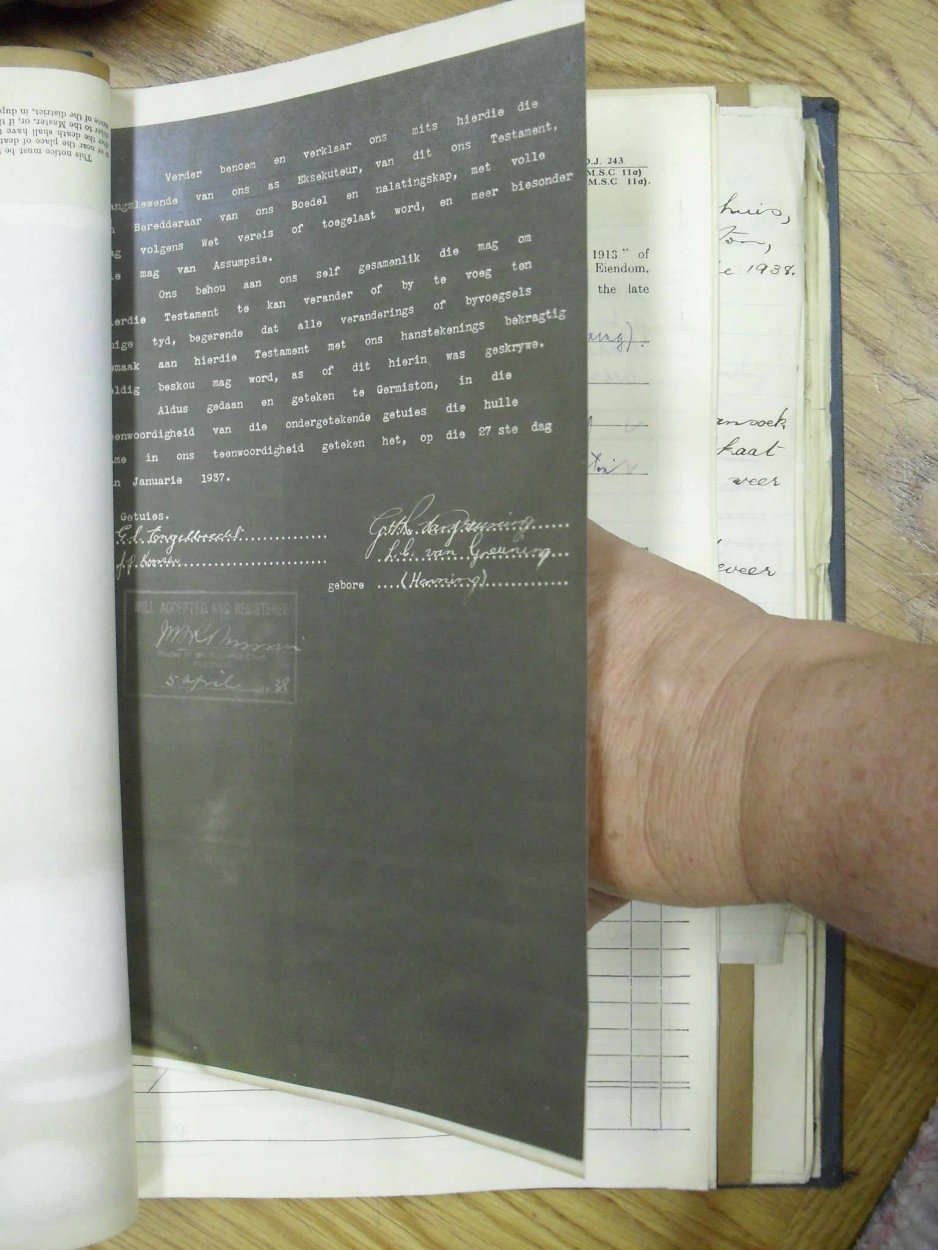 This notice must be
D.J. 243
M.S.C 11a)
M.S.C. 11a).
1913 " of
Eiendom,
the late
huis,
1938.
kaat
veer
Verder benoem en verklaar ons mits hierdie die
angslewende van ons as Eksekuteur, van dit ons Testament,
Beredderaar van ons Boedel en nalatingskap, met volle
ag volgens Wet vereis of toegelaat word, en meer biesonder
ie mag van Assumpsie.
Ons behou aan ons self gesamenlik die mag om
ierdie Testament te kan verander of by te voeg ten
nige tyd, begerende dat alle veranderings of byvoegsels
maak aan hierdie Testament met ons hanstekenings bekragtig
ldig beskou mag word, as of dit hierin was geskrywe.
Aldus gedaan en geteken te Germiston, in die
enwoordigheid van die ondergetekende getuies die hulle
me in ons teenwoordigheid geteken het, op die 27 ste dag
n Januarie 1937.
Getuies.
Engelbrecht
van Greuning
L.C. van Greuning
gebore (Henning)
WILL ACCEPTED AND REGISTERED
5 April 38